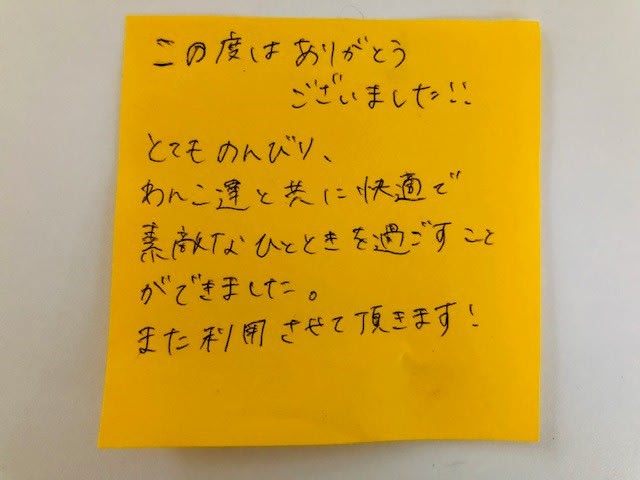 この度は ありがとう
ございました!!
とても のんびり、
わんこ達と共に快適で
素敵な ひとときを過ごすこと
ができました。
また利用させて頂きます!